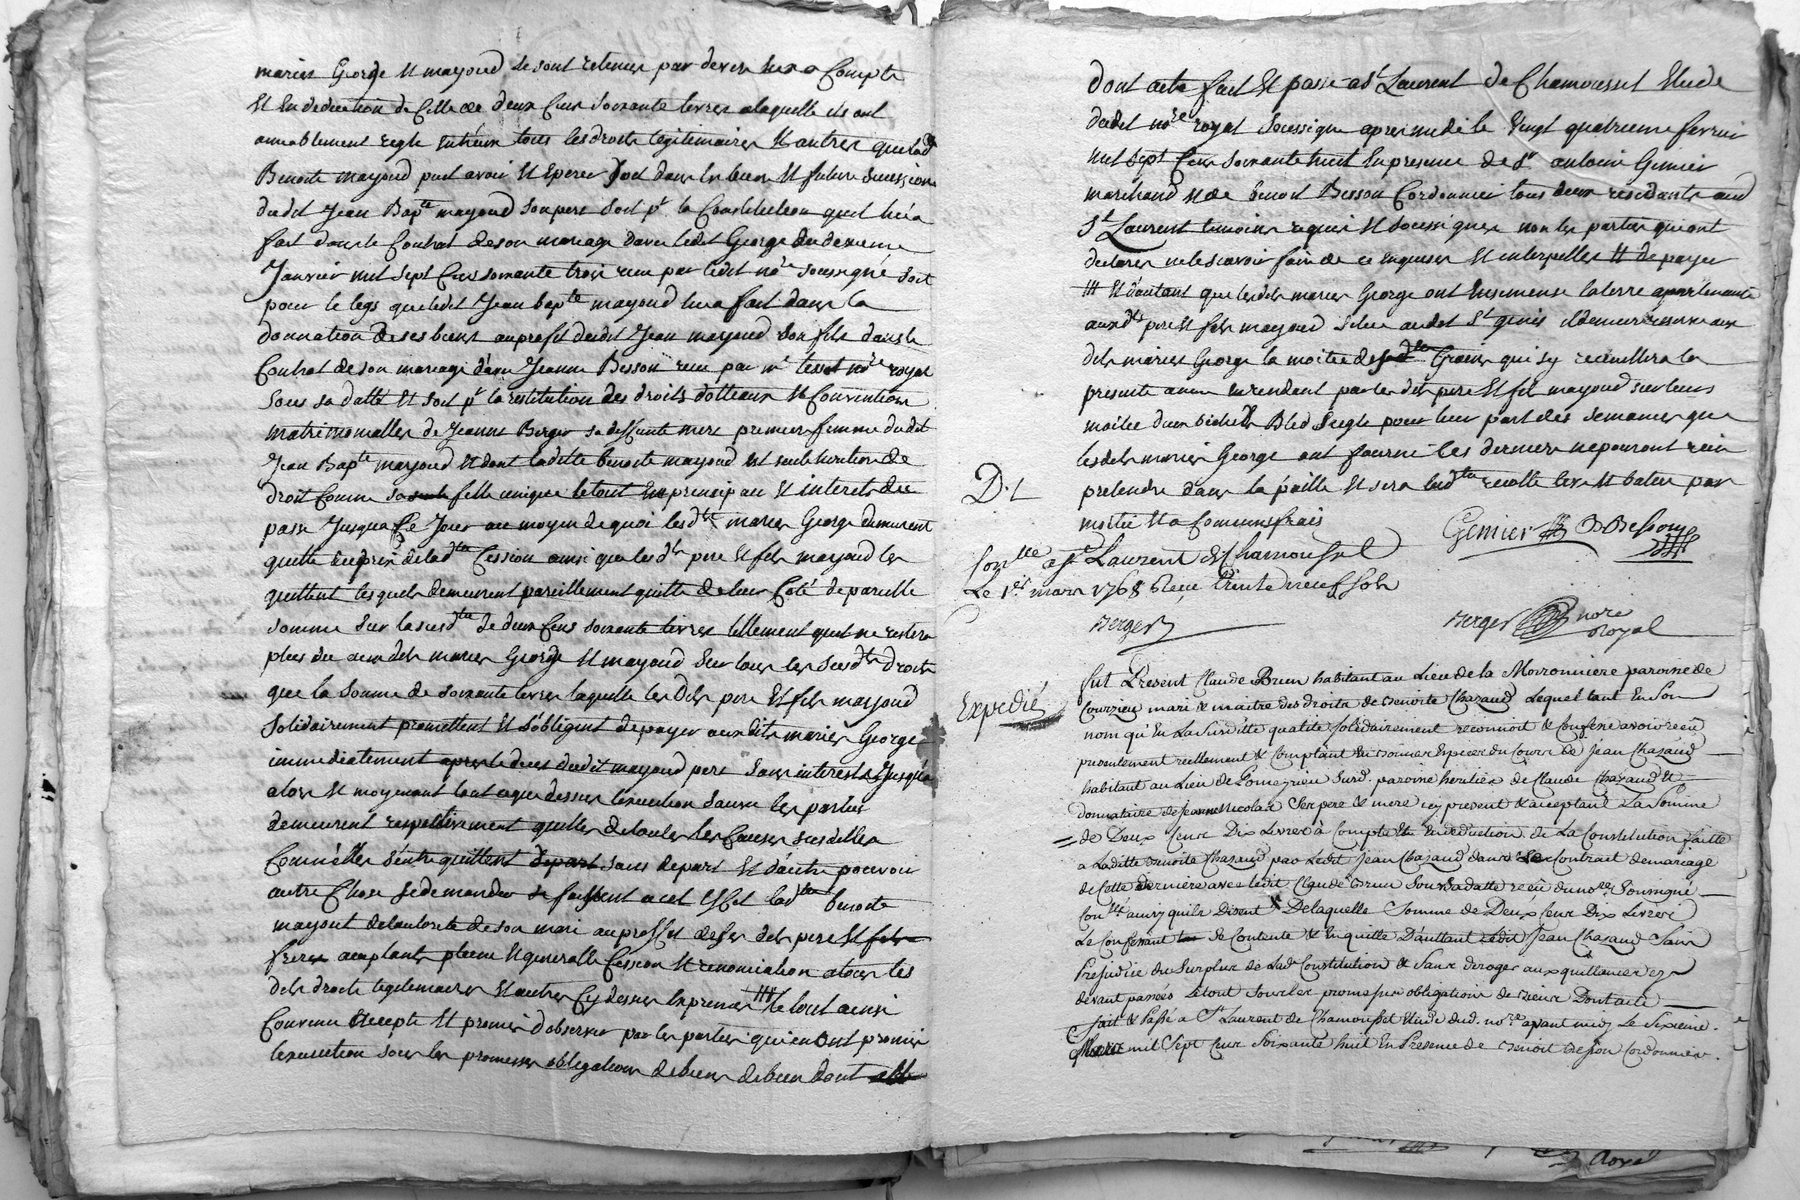 mariés George et mayoud se sont retenus par devers eux a Compte
et En deduction de Celle de deux Cens soixante livres a laquelle ils ont
amiablement reglé tous les droits legitimaires et autres que lad
Benoite mayoud peut avoir et Esperer soit dans les biens et future succession
dudit Jean Bapte mayoud son pere soit pr la Constitution quil lui a
fait dans le Contrat de son mariage d'avec ledit George du
Janvier mil sept Cens soixante trois reçu par ledit nore soussigné soit
pour le legs que ledit Jean bapte mayoud lui a fait dans la
donnation de ses biens au profit dudit Jean mayoud son fils dans le
Contrat de son mariage d'avec Jeanne Besson reçu par me nore royal
sous sa datte et soit pr la restitution des droits dotteaux et Convention
matrimonialles de Jeanne Berger sa deffunte mere premiere femme dudit
Jean Bapte mayoud et dont laditte benoite mayoud est seule heritiere de
droit Comme sa fille unique le tout En principau et interets du
passé Jusqua Ce Jour au moyen de quoi lesdts mariés George demeurent
quitte du prix de ladte Cession ainsi que lesdts pere et fils mayoud les
quittent lesquels demeurent pareillement quitte de leur Coté de pareille
somme sur la susdte de deux Cens soixante livres tellement quil ne restera
plus du auxdits mariés George et mayoud sur tous les susdts droits
que la somme de soixante livres laquelle lesdits pere et fils mayoud
solidairement promettent et s'obligent de payer auxdits mariés George
immediatement apres le deces dudit mayoud pere sans interets Jusqu'a
alors et moyenant tout ce que dessus les parties
demeurent respectivement quittes de toutes les Causes susdittes
s'entre quittent sans depart et d'autre pouvoir
autre Chose se demander se faisant a cet Effet ladte benoite
mayout de lautorité de son mari au proffit desdits pere et fils
freres acceptants pleine et generalle Cession et renonciation a tous les
dits droits legitimaires et autres Cy dessus Exprimés le tout ainsi
Convenu accepté et promis d'observer par les parties qui en ont promis
lexecution sous les promesses obligations de biens dont
dont acte fait et passé a St Laurent de Chamousset Etude
dudit nore royal soussigné apres midi le vingt quatrieme fevrier
mil sept Cens soixante huit En presence de Sr antoine Gimier
marchand et de benoit Besson Cordonnier tous deux residants aud
St Laurent temoins requis et soussignés non les parties qui ont
declarer ne le scavoir faire de ce Enquises et interpellés de payer
Et d'autant que lesdits mariés George ont Ensemensé la terre apartenante
auxdts pere et fils mayoud située audit St genis il demeure reservé aux
dits mariés George la moitié des grains qui sy recueillera la
presente année En rendant par lesdits pere et fils mayoud sur leurs
moitié deux bichets Bled Seigle pour leur part des semances que
lesdits mariés George ont fourni les derniers ne pouront rien
pretendre dans la paille et sera ladte recolte levé et batue par
moitié et a Communs frais
Gimier B Besson
D.l
Conlle a St Laurent de Chamousset
Le 1er mars 1768 Reçu trente neuf sols
Berger
Berger nore
Royal
Expedié
fut Present Claude Brun habitant au Lieu de la Morronniere paroisse de
Courzieu mari & maitre des droits de Benoite Chazaud Lequel tant En son
nom qu'En La Susditte qualité Solidairement reconnoit & Confesse avoir reçu
presentement reellement & Comptant En bonnes Especes du Cours de Jean Chazaud
habitant au Lieu de Pomeyrieu Surd. paroisse heritier de Claude Chazaud &
donnataire de Jeanne Nicolas Ses pere & mere icy present & acceptant La Somme
de Deux Cens Dix Livres à Compte Et En deduction de La Constitution faitte
a Laditte Benoite Chazaud par Ledit Jean Chazaud dans le Contrait de mariage
de Cette derniere avec ledit Claude Brun Sous Sa datte reçu du nore Soussigné
Conllé ainsy quils Disent Delaquelle Somme de Deux Cens Dix Livres
Le Confessant Se Contente & En quitte D'auttant Ledit Jean Chazaud Sans
Prejudice du Surplus de Lade Constitution & Sans deroger aux quittances cy
devant passées Le tout Sous les promesses obligations de biens Dont acte
fait & Passé a St Laurent de Chamousset Etude dud. nore avant midy Le Sixieme
Mars mil Sept Cens Soixante huit En Presence de Benoit Besson Cordonnier